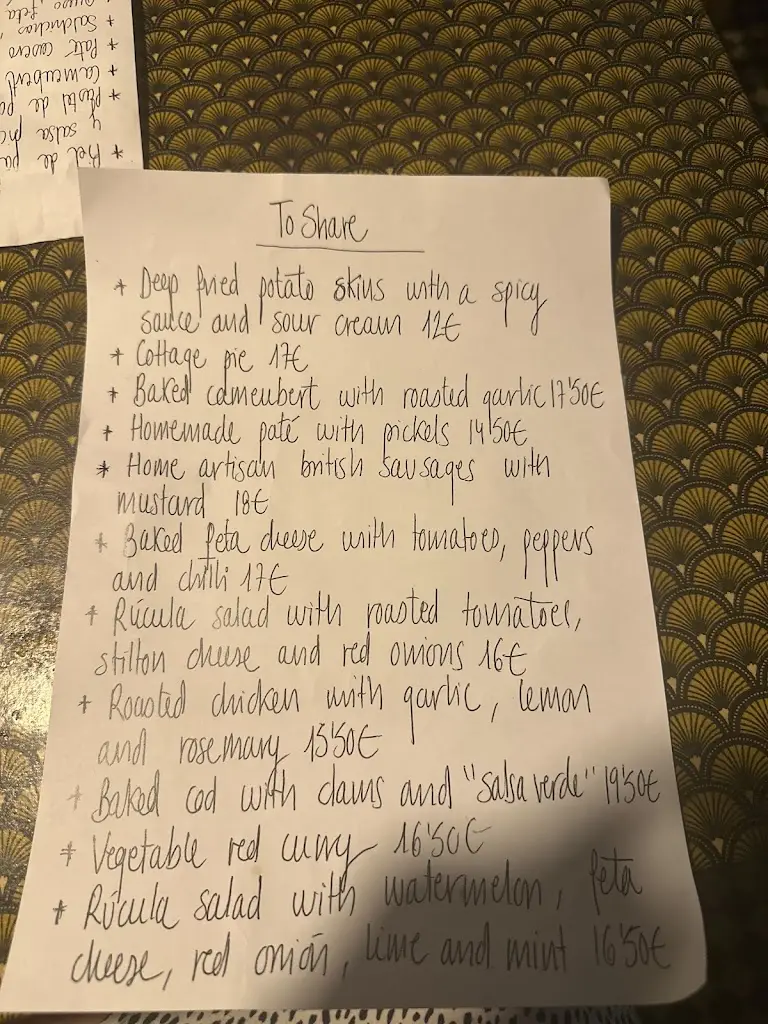 * Salchichas
* Paté casero
* Camembert
* Pastel de
y salsa
* Piel de pa
To Share
* Deep fried potato skins with a spicy
sauce and sour cream 12€
* Cottage pie 17€
* Baked camembert with roasted garlic 17'50€
* Homemade paté with pickels 14'50€
* Home artisan british sausages with
mustard 18€
* Baked feta cheese with tomatoes, peppers
and chilli 17€
* Rúcula salad with roasted tomatoes,
stilton cheese and red onions 16€
* Roasted chicken with garlic, lemon
and rosemary 15'50€
* Baked cod with clams and "salsa verde" 19'50€
* Vegetable red curry 16'50€
* Rúcula salad with watermelon, feta
cheese, red onion, lime and mint 16'50€